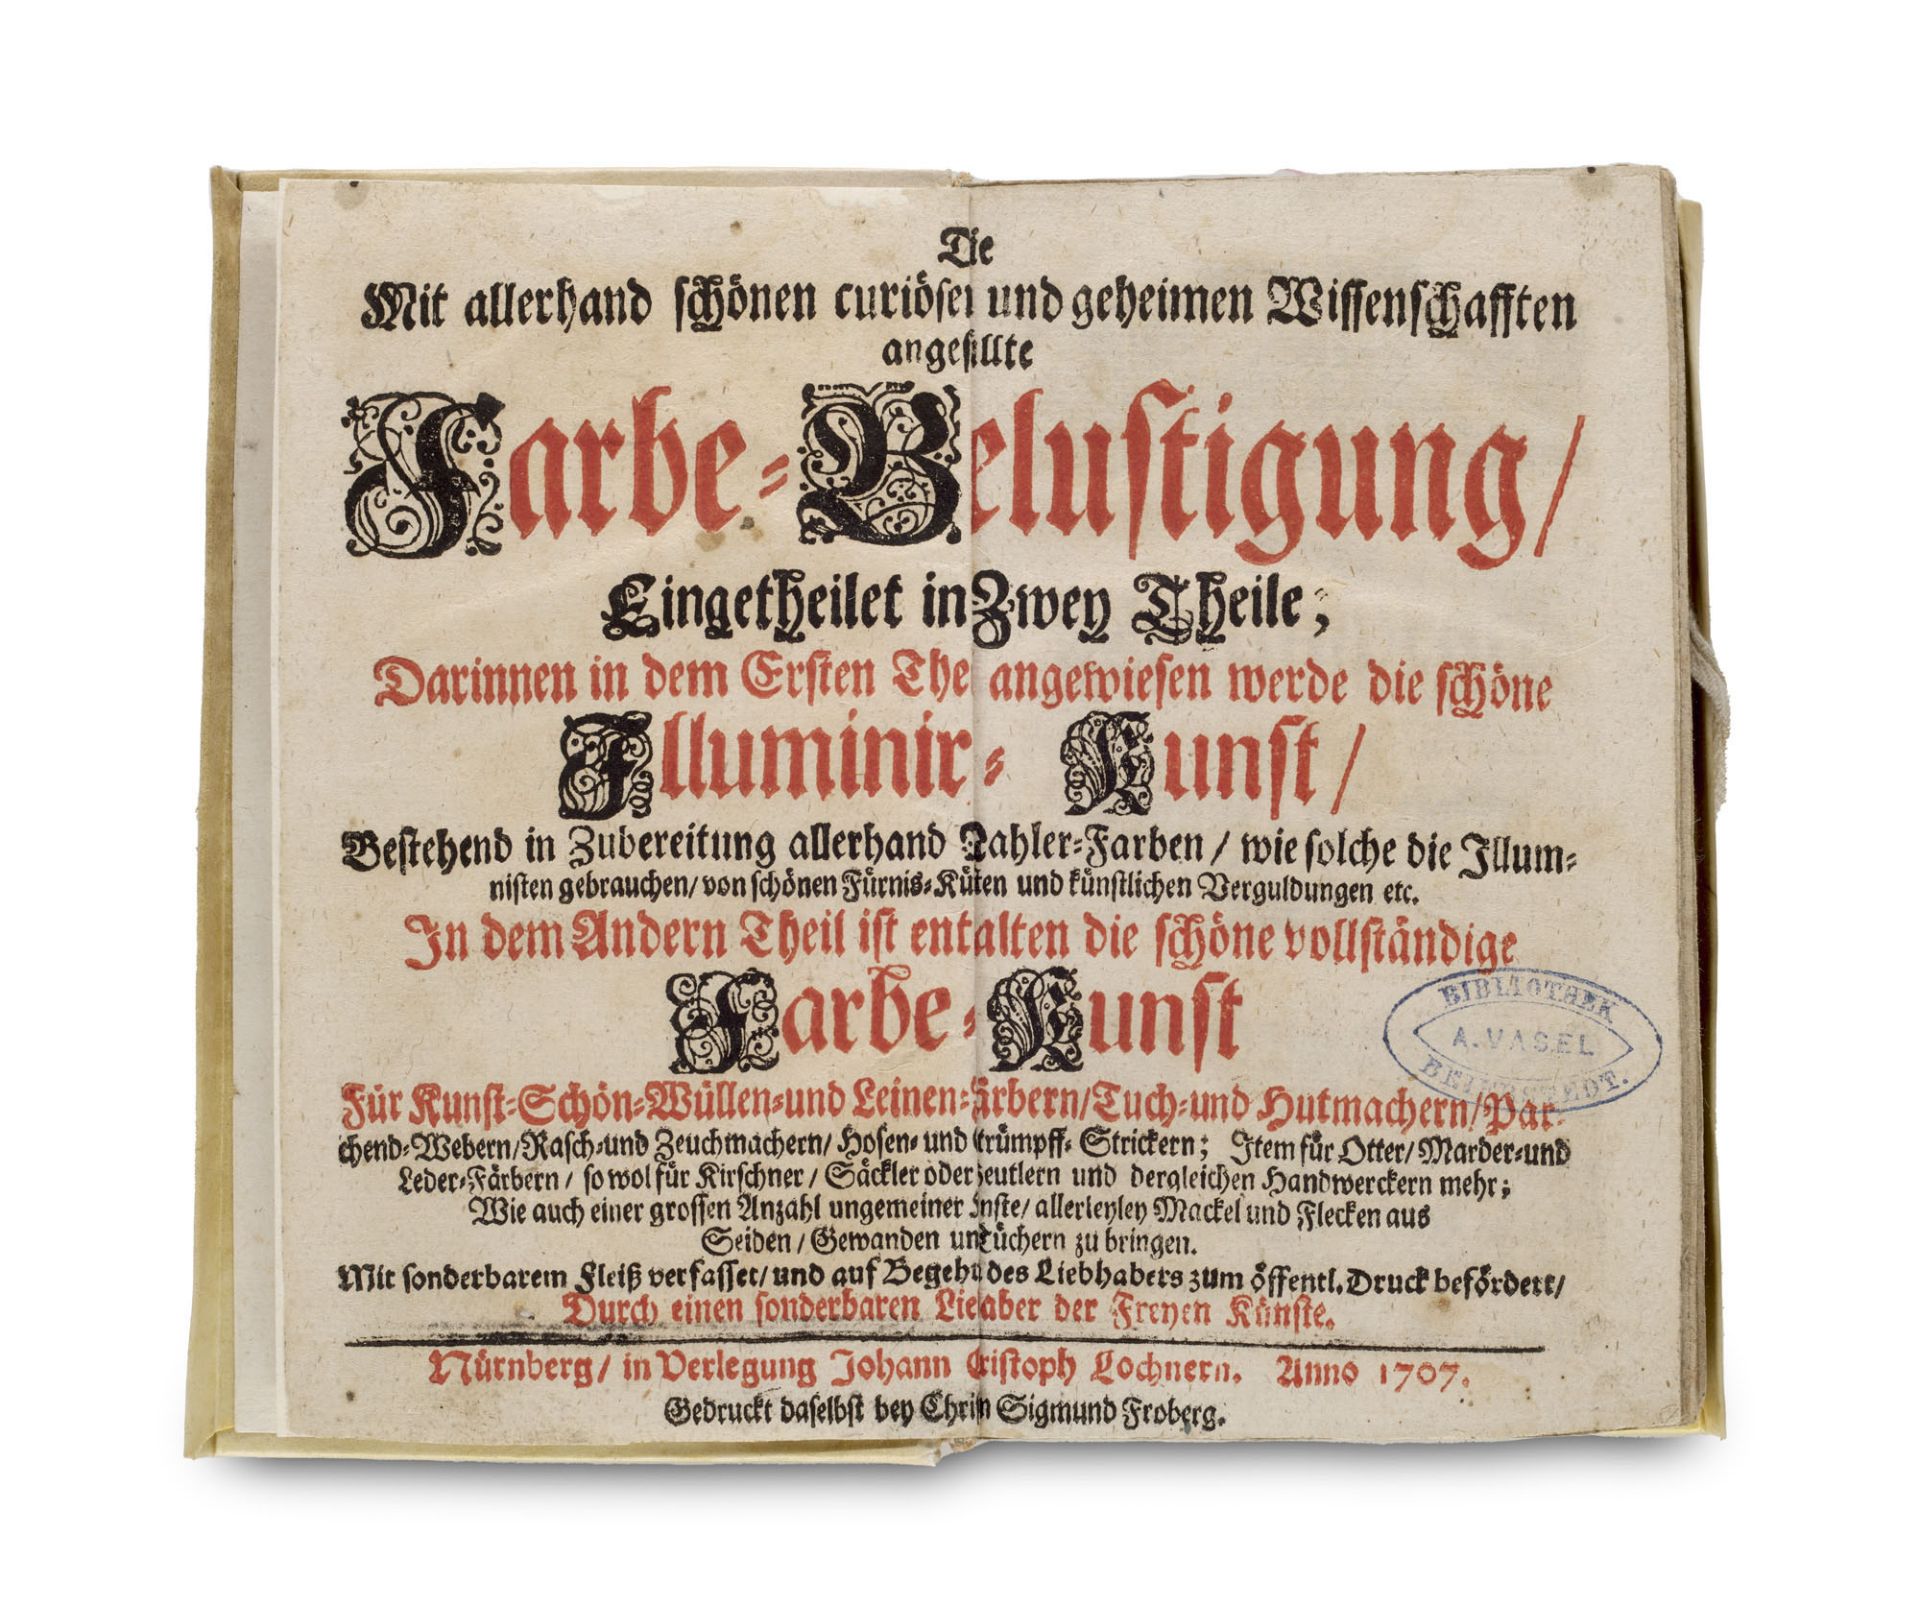 Die
Mit allerhand schönen curiösen und geheimen Wissenschafften
angefüllte
Farbe-Belustigung/
Eingetheilet in Zwey Theile;
Darinnen in dem Ersten The angewiesen werde die schöne
Illuminir- Kunst/
Bestehend in Zubereitung allerhand Mahler-Farben/ wie solche die Illum-
nisten gebrauchen/ von schönen Fürnis-Küten und künstlichen Verguldungen etc.
In dem Andern Theil ist entalten die schöne vollständige
Farbe-Kunst
Für Kunst-Schön-Wüllen-und Leinen-Färbern/Tuch-und Hutmachern/Par-
chend-Webern/Rasch-und Zeuchmachern/ Hosen- und Strümpff-Strickern; Item für Otter/ Marder-und
Leder-Färbern/ so wol für Kirschner/ Säckler oder Beutlern und dergleichen Handwerckern mehr;
Wie auch einer grossen Anzahl ungemeiner Künste/ allerleyley Mackel und Flecken aus
Seiden/ Gewanden und Tüchern zu bringen.
Mit sonderbarem Fleiß verfasset/ und auf Begehr des Liebhabers zum öffentl. Druck befördert/
Durch einen sonderbaren Liebhaber der Freyen Künste.
Nürnberg/ in Verlegung Johann Christoph Lochnern. Anno 1707.
Gedruckt daselbst bey Christian Sigmund Froberg.
BIBLIOTHEK
A. VASEL
BEIERSTEDT.